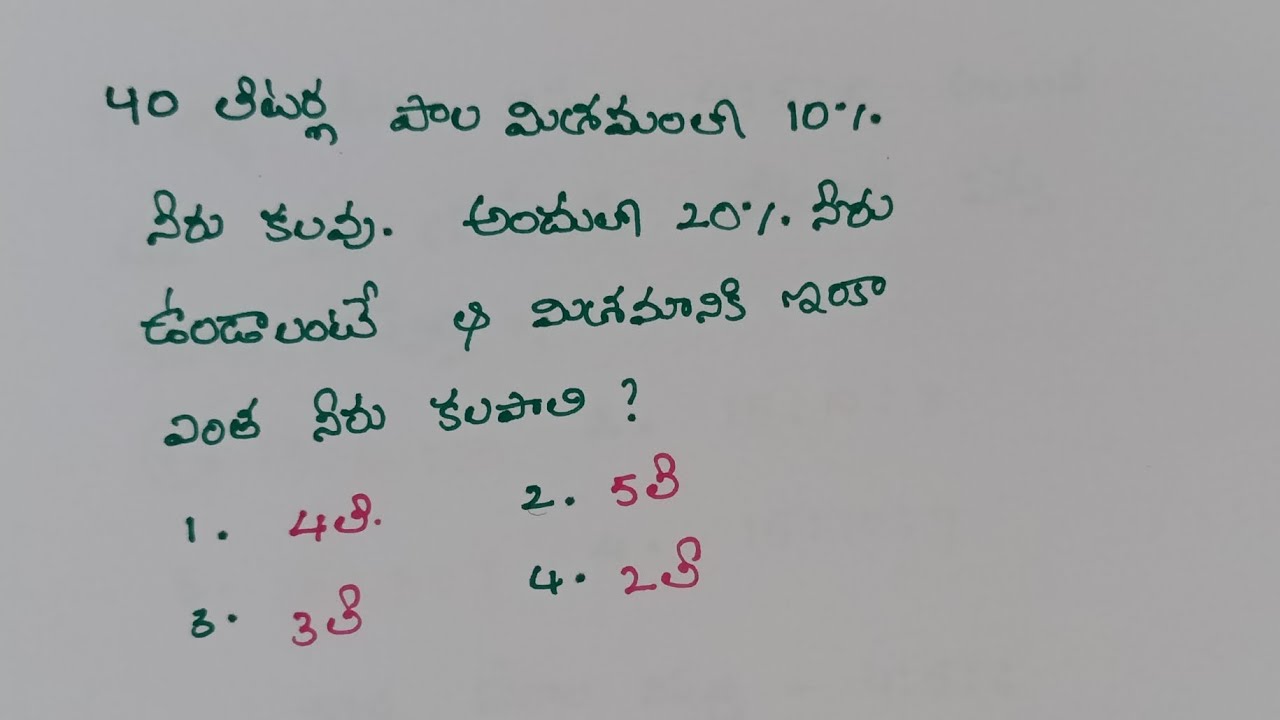 40 లీటర్ల పాల మిశ్రమంలో 10%
నీరు కలవు. అందులో 20% నీరు
ఉండాలంటే ఆ మిశ్రమానికి ఇంకా
ఎంత నీరు కలపాలి ?
1. 4లీ. 2. 5లీ
3. 3లీ 4. 2లీ